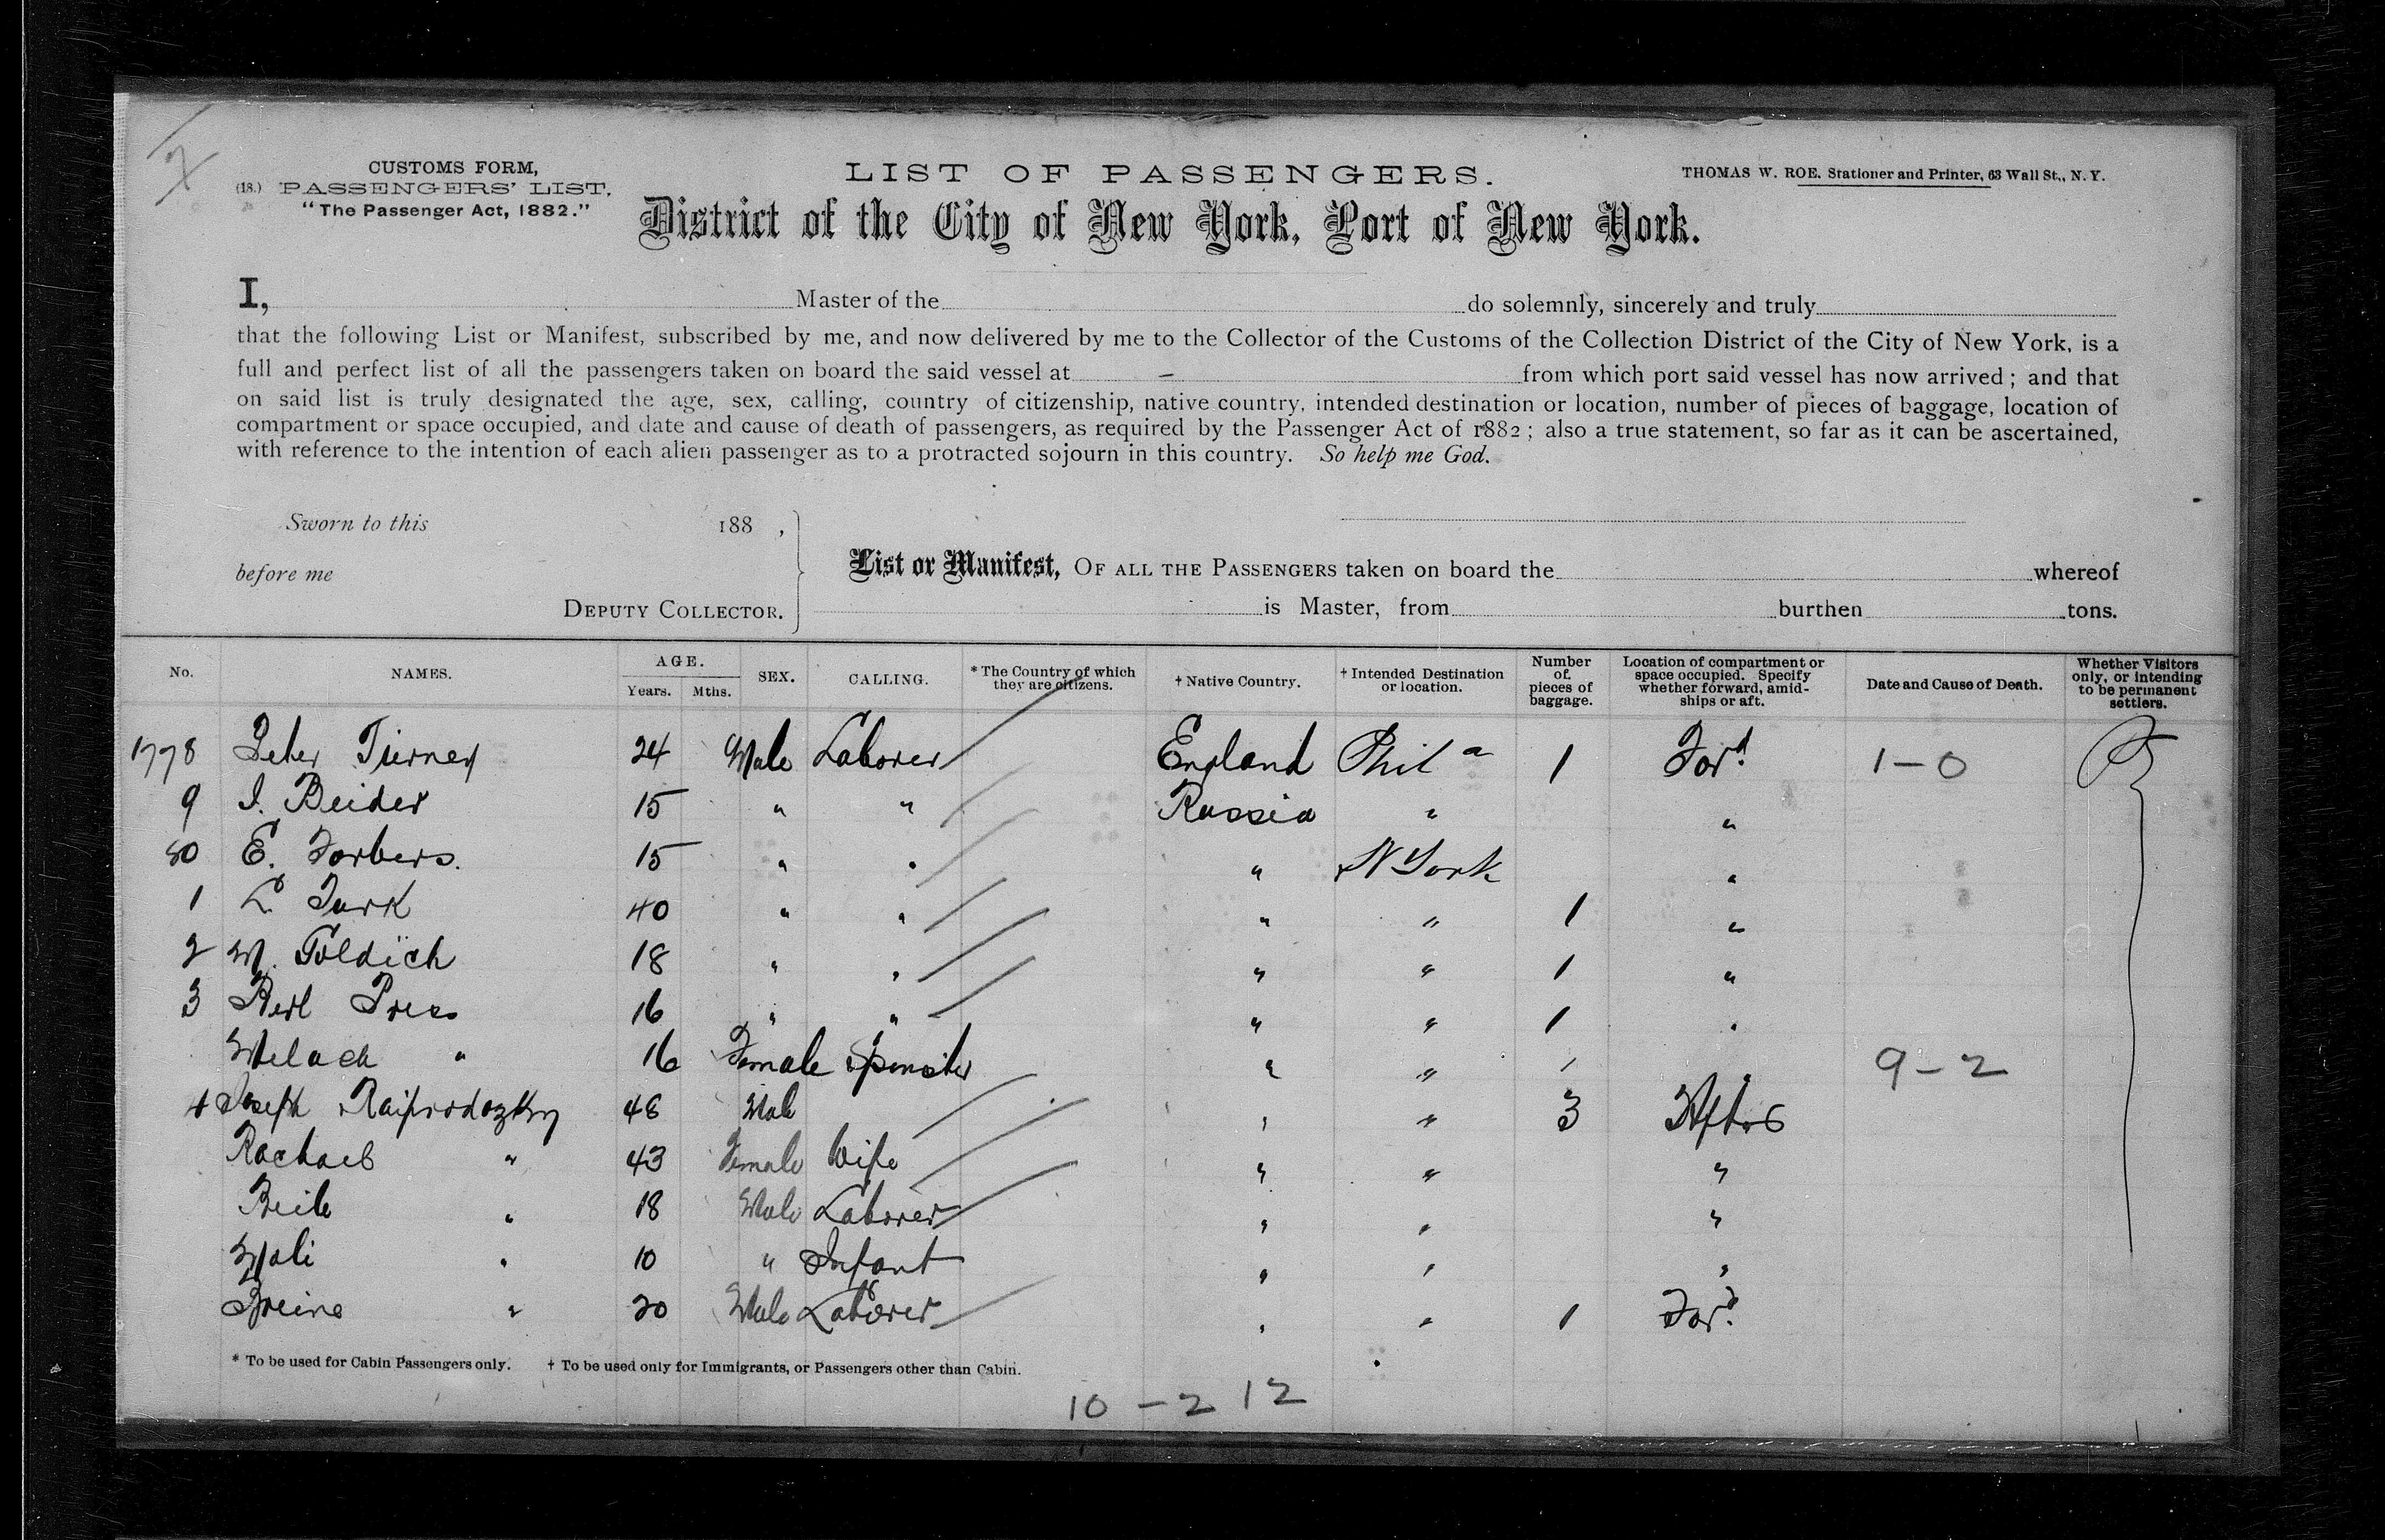 CUSTOMS FORM,
(18.) PASSENGERS' LIST.
"The Passenger Act, 1882."
LIST OF PASSENGERS.
THOMAS W. ROE. Stationer and Printer, 63 Wall St., N. Y.
District of the City of New York, Port of New York.
I, Master of the do solemnly, sincerely and truly
that the following List or Manifest, subscribed by me, and now delivered by me to the Collector of the Customs of the Collection District of the City of New York, is a
full and perfect list of all the passengers taken on board the said vessel at from which port said vessel has now arrived; and that
on said list is truly designated the age, sex, calling, country of citizenship, native country, intended destination or location, number of pieces of baggage, location of
compartment or space occupied, and date and cause of death of passengers, as required by the Passenger Act of 1882; also a true statement, so far as it can be ascertained,
with reference to the intention of each alien passenger as to a protracted sojourn in this country. So help me God.
Sworn to this 188 ,
before me
DEPUTY COLLECTOR.
List or Manifest, OF ALL THE PASSENGERS taken on board the whereof
is Master, from burthen tons.
No. NAMES. AGE. Years. Mths. SEX. CALLING. * The Country of which they are citizens. † Native Country. † Intended Destination or location. Number of pieces of baggage. Location of compartment or space occupied. Specify whether forward, amidships or aft. Date and Cause of Death. Whether Visitors only, or intending to be permanent settlers.
1778 Peter Tierney 24 Male Laborer England Phila 1 Ford. 1-0
9 I. Beider 15 " " Russia " "
80 E. Forbers. 15 " " " N York "
1 L. Turk 40 " " " " 1 "
2 M. Goldich 18 " " " " 1 "
3 Berl Press 16 " " " " 1 "
" 16 Female Spinster " " 1 " 9-2
4 Joseph 48 Male " " 3
Rachael " 43 Female Wife " " "
Beile " 18 Male Laborer " " "
Mali " 10 " Infant " " "
" 20 Male Laborer " " 1 Ford.
* To be used for Cabin Passengers only. † To be used only for Immigrants, or Passengers other than Cabin.
10 - 2 12